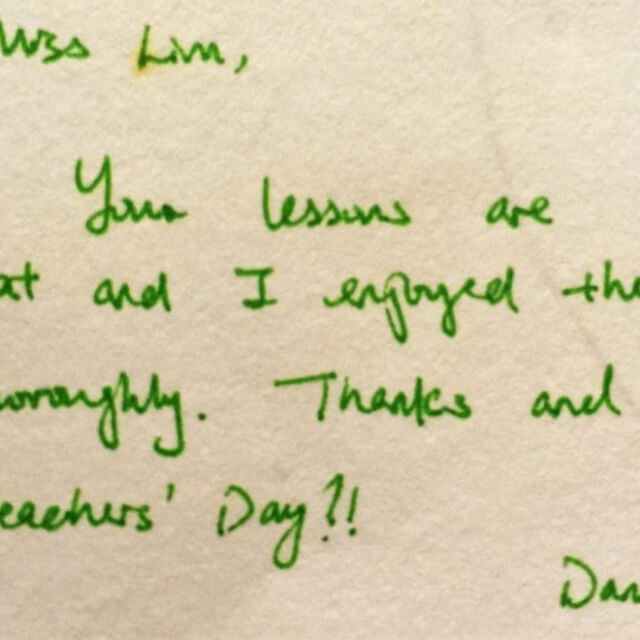 Miss Lim,
Your lessons are
at and I enjoyed the
oroughly. Thanks and
eachers' Day?!!
Dan